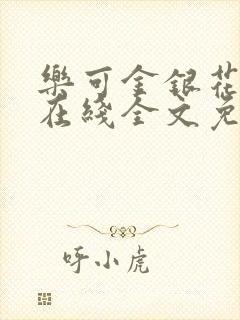 樂可金銀花
在綫全文免
呼小虎